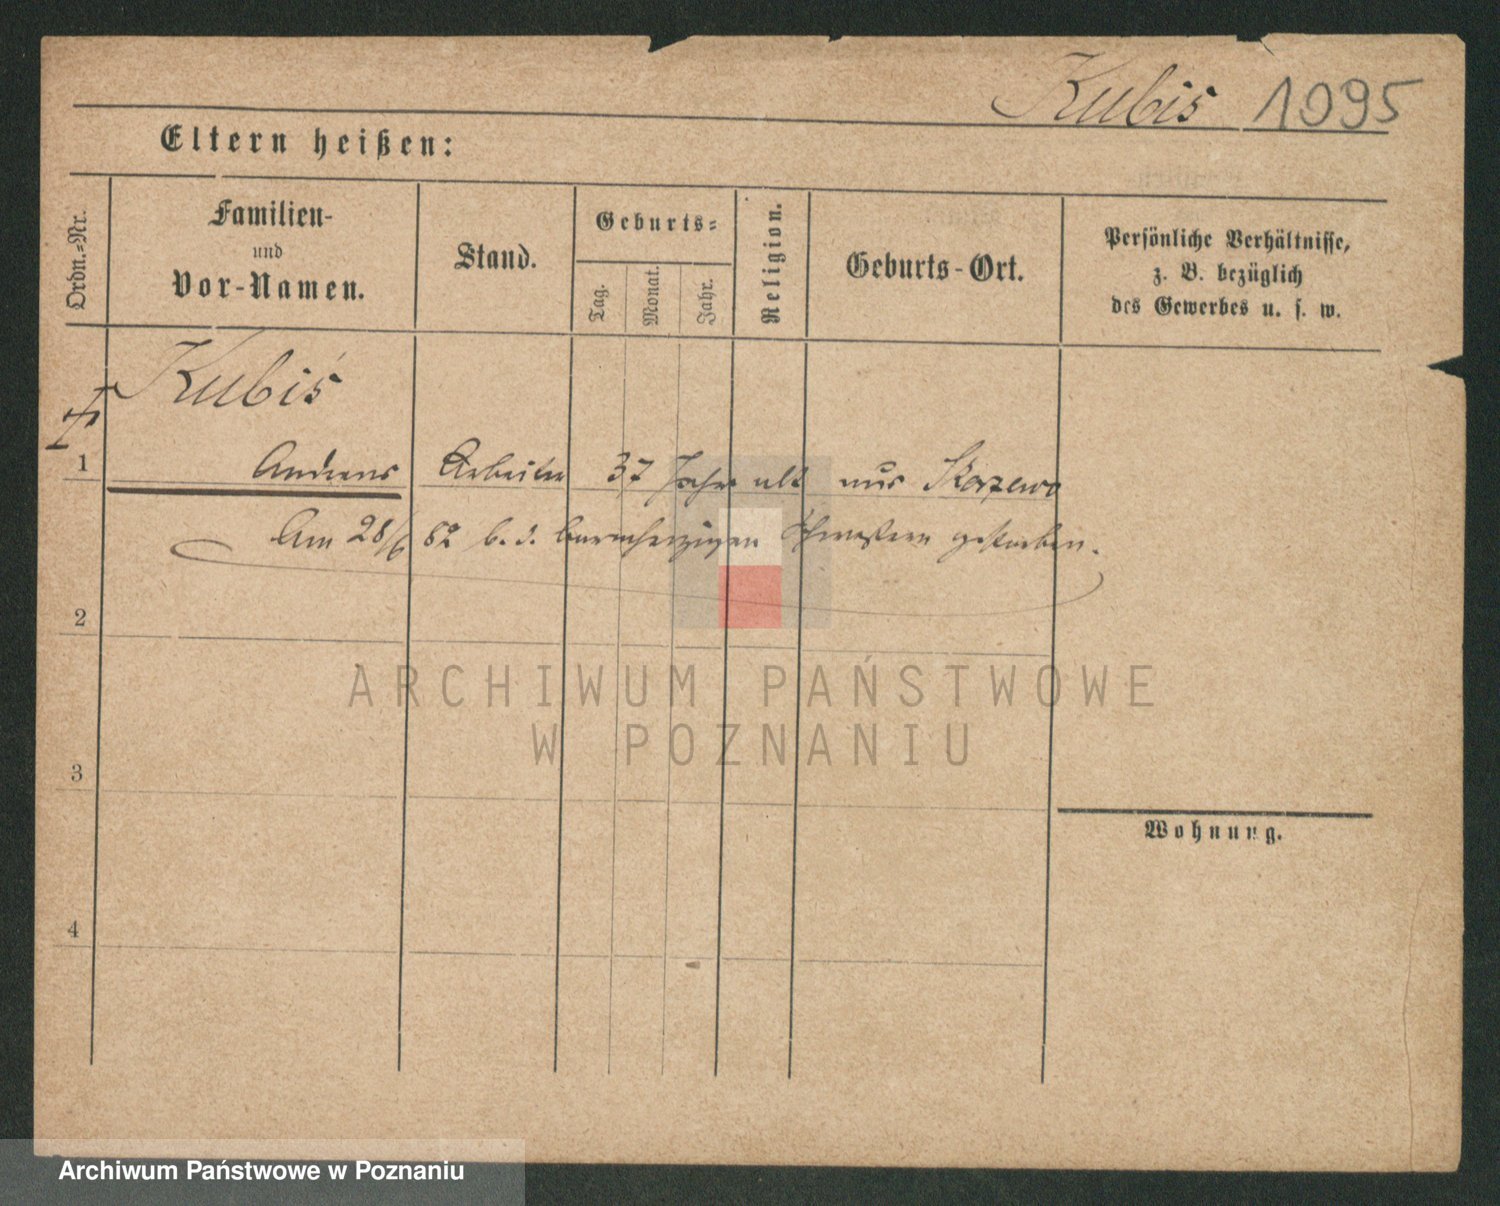 Kubis 1095
Eltern heißen:
Ordn.=Nr.
Familien-
und
Vor-Namen.
Stand.
Geburts=
Tag.
Monat.
Jahr.
Religion.
Geburts-Ort.
Persönliche Verhältnisse,
z. B. bezüglich
des Gewerbes u. s. w.
Kubiś
1 Andreas Arbeiter 37 Jahre alt aus
Am 28/6 82 b. d. barmherzigen Schwestern gestorben.
2
3
Wohnung.
4
ARCHIWUM PAŃSTWOWE
W POZNANIU
Archiwum Państwowe w Poznaniu